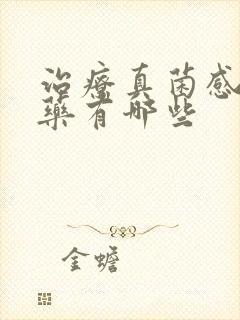 治療真菌感
藥有哪些
金蟾